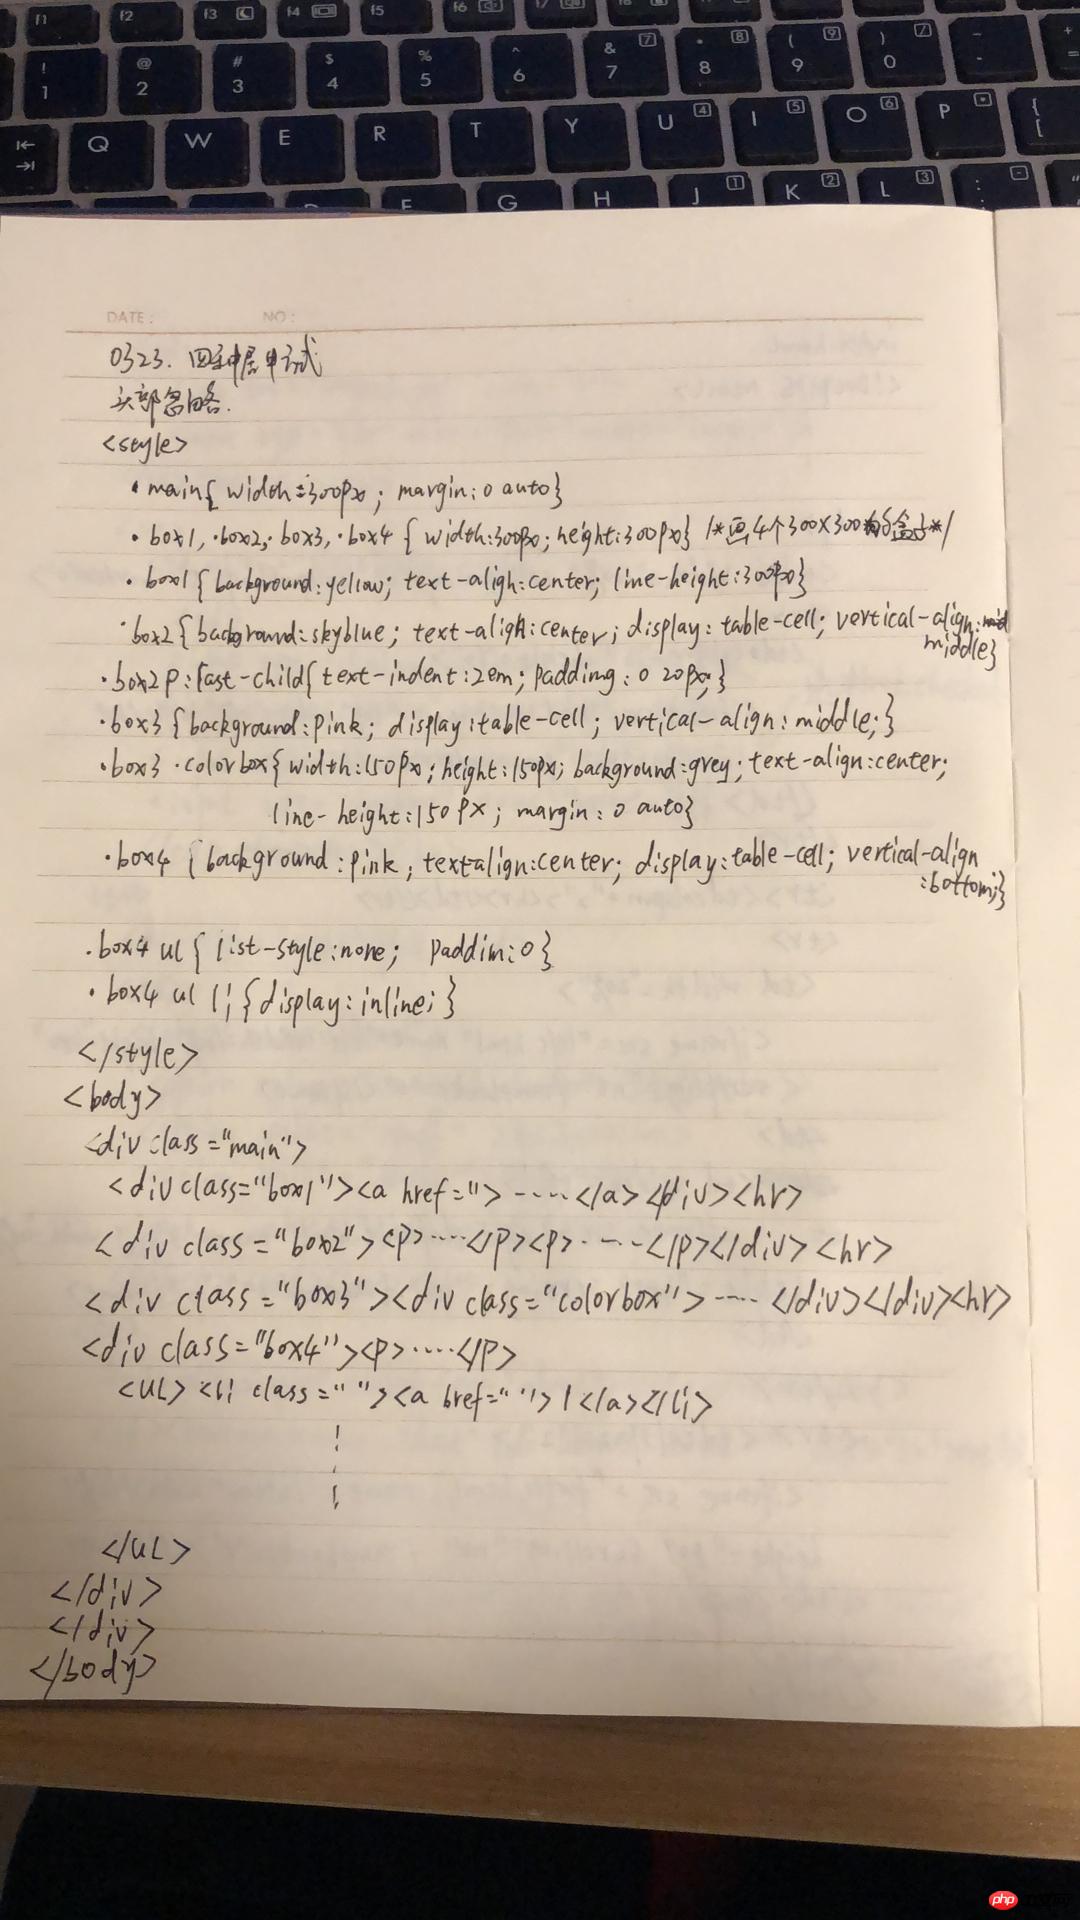 f1 f2 f3 f4 f5 f6 f7
! 1 @ 2 # 3 $ 4 % 5 ^ 6 & 7 7 * 8 8 ( 9 9 ) 0 / - + =
Q W E R T Y U 4 I 5 O 6 P * { [
G H J 1 K 2 L 3 : ; -
DATE: NO:
0323. 四种居中方式
头部忽略.
<style>
.main{ width:300px; margin:0 auto}
.box1, .box2, .box3, .box4 { width:300px; height:300px} /*画4个300X300的盒子*/
.box1 {background:yellow; text-align:center; line-height:300px}
.box2{background:skyblue; text-align:center; display:table-cell; vertical-align:
middle}
.box2 p:last-child{ text-indent:2em; padding: 0 20px;}
.box3 {background:pink; display:table-cell; vertical-align:middle;}
.box3 .colorbox{width:150px; height:150px; background:grey; text-align:center;
line-height:150px; margin:0 auto}
.box4 {background:pink; textalign:center; display:table-cell; vertical-align
:bottom;}
.box4 ul { list-style:none; paddim:0}
.box4 ul li {display:inline;}
</style>
<body>
<div class="main">
<div class="box1"><a href=">·····</a></div><hr>
<div class="box2"><p>·····</p><p>······</p></div><hr>
<div class="box3"><div class="colorbox">·····</div></div><hr>
<div class="box4"><p>·····</p>
<UL><li class=" "><a href=" ">1</a></li>
</UL>
</div>
</div>
</body>
php